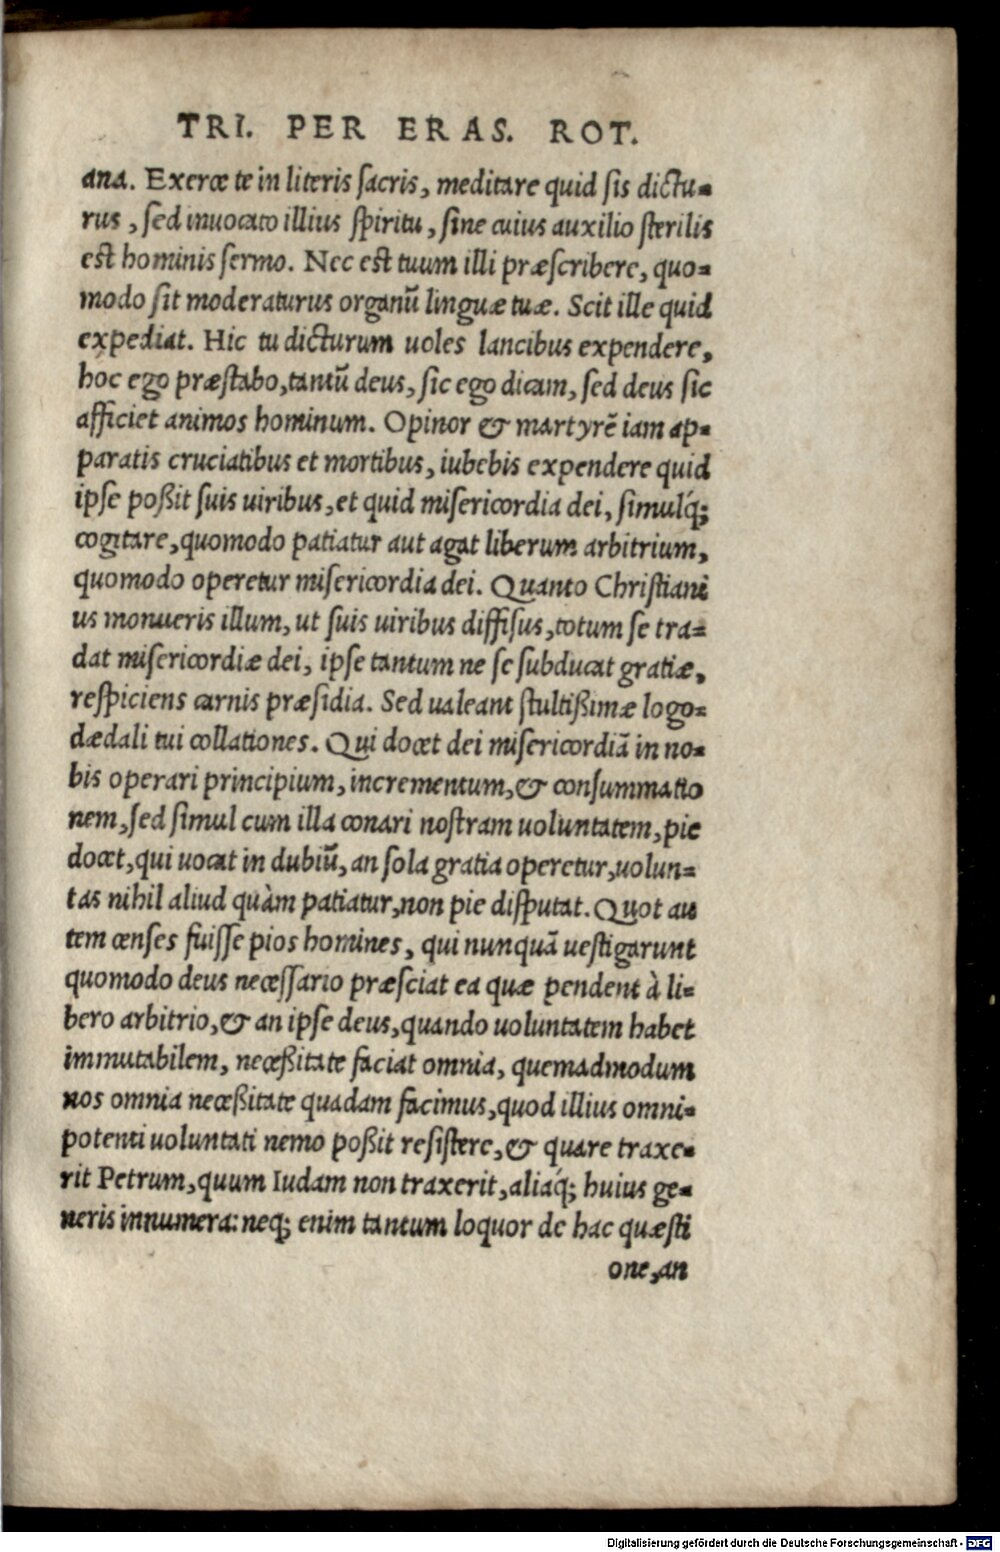 TRI. PER ERAS. ROT.
ana. Exerce te in literis sacris, meditare quid sis dictu-
rus, sed inuocato illius spiritu, sine cuius auxilio sterilis
est hominis sermo. Nec est tuum illi præscribere, quo-
modo sit moderaturus organū linguæ tuæ. Scit ille quid
expediat. Hic tu dicturum uoles lancibus expendere,
hoc ego præstabo, tantū deus, sic ego dicam, sed deus sic
afficiet animos hominum. Opinor & martyrē iam ap-
paratis cruciatibus et mortibus, iubebis expendere quid
ipse poßit suis uiribus, et quid misericordia dei, simulq́;
cogitare, quomodo patiatur aut agat liberum arbitrium,
quomodo operetur misericordia dei. Quanto Christiani
us monueris illum, ut suis uiribus diffisus, totum se tra-
dat misericordiæ dei, ipse tantum ne se subducat gratiæ,
respiciens carnis præsidia. Sed ualeant stultißimæ logo-
dædali tui collationes. Qui docet dei misericordiā in no-
bis operari principium, incrementum, & consummatio
nem, sed simul cum illa conari nostram uoluntatem, pie
docet, qui uocat in dubiū, an sola gratia operetur, uolun-
tas nihil aliud quàm patiatur, non pie disputat. Quot au
tem censes fuisse pios homines, qui nunquā uestigarunt
quomodo deus necessario præsciat ea quæ pendent à li-
bero arbitrio, & an ipse deus, quando uoluntatem habet
immutabilem, neceßitate faciat omnia, quemadmodum
nos omnia neceßitate quadam facimus, quod illius omni-
potenti uoluntati nemo poßit resistere, & quare traxe-
rit Petrum, quum Iudam non traxerit, aliaq́; huius ge-
neris innumera: neq; enim tantum loquor de hac quæsti
one, an
Digitalisierung gefördert durch die Deutsche Forschungsgemeinschaft - DFG